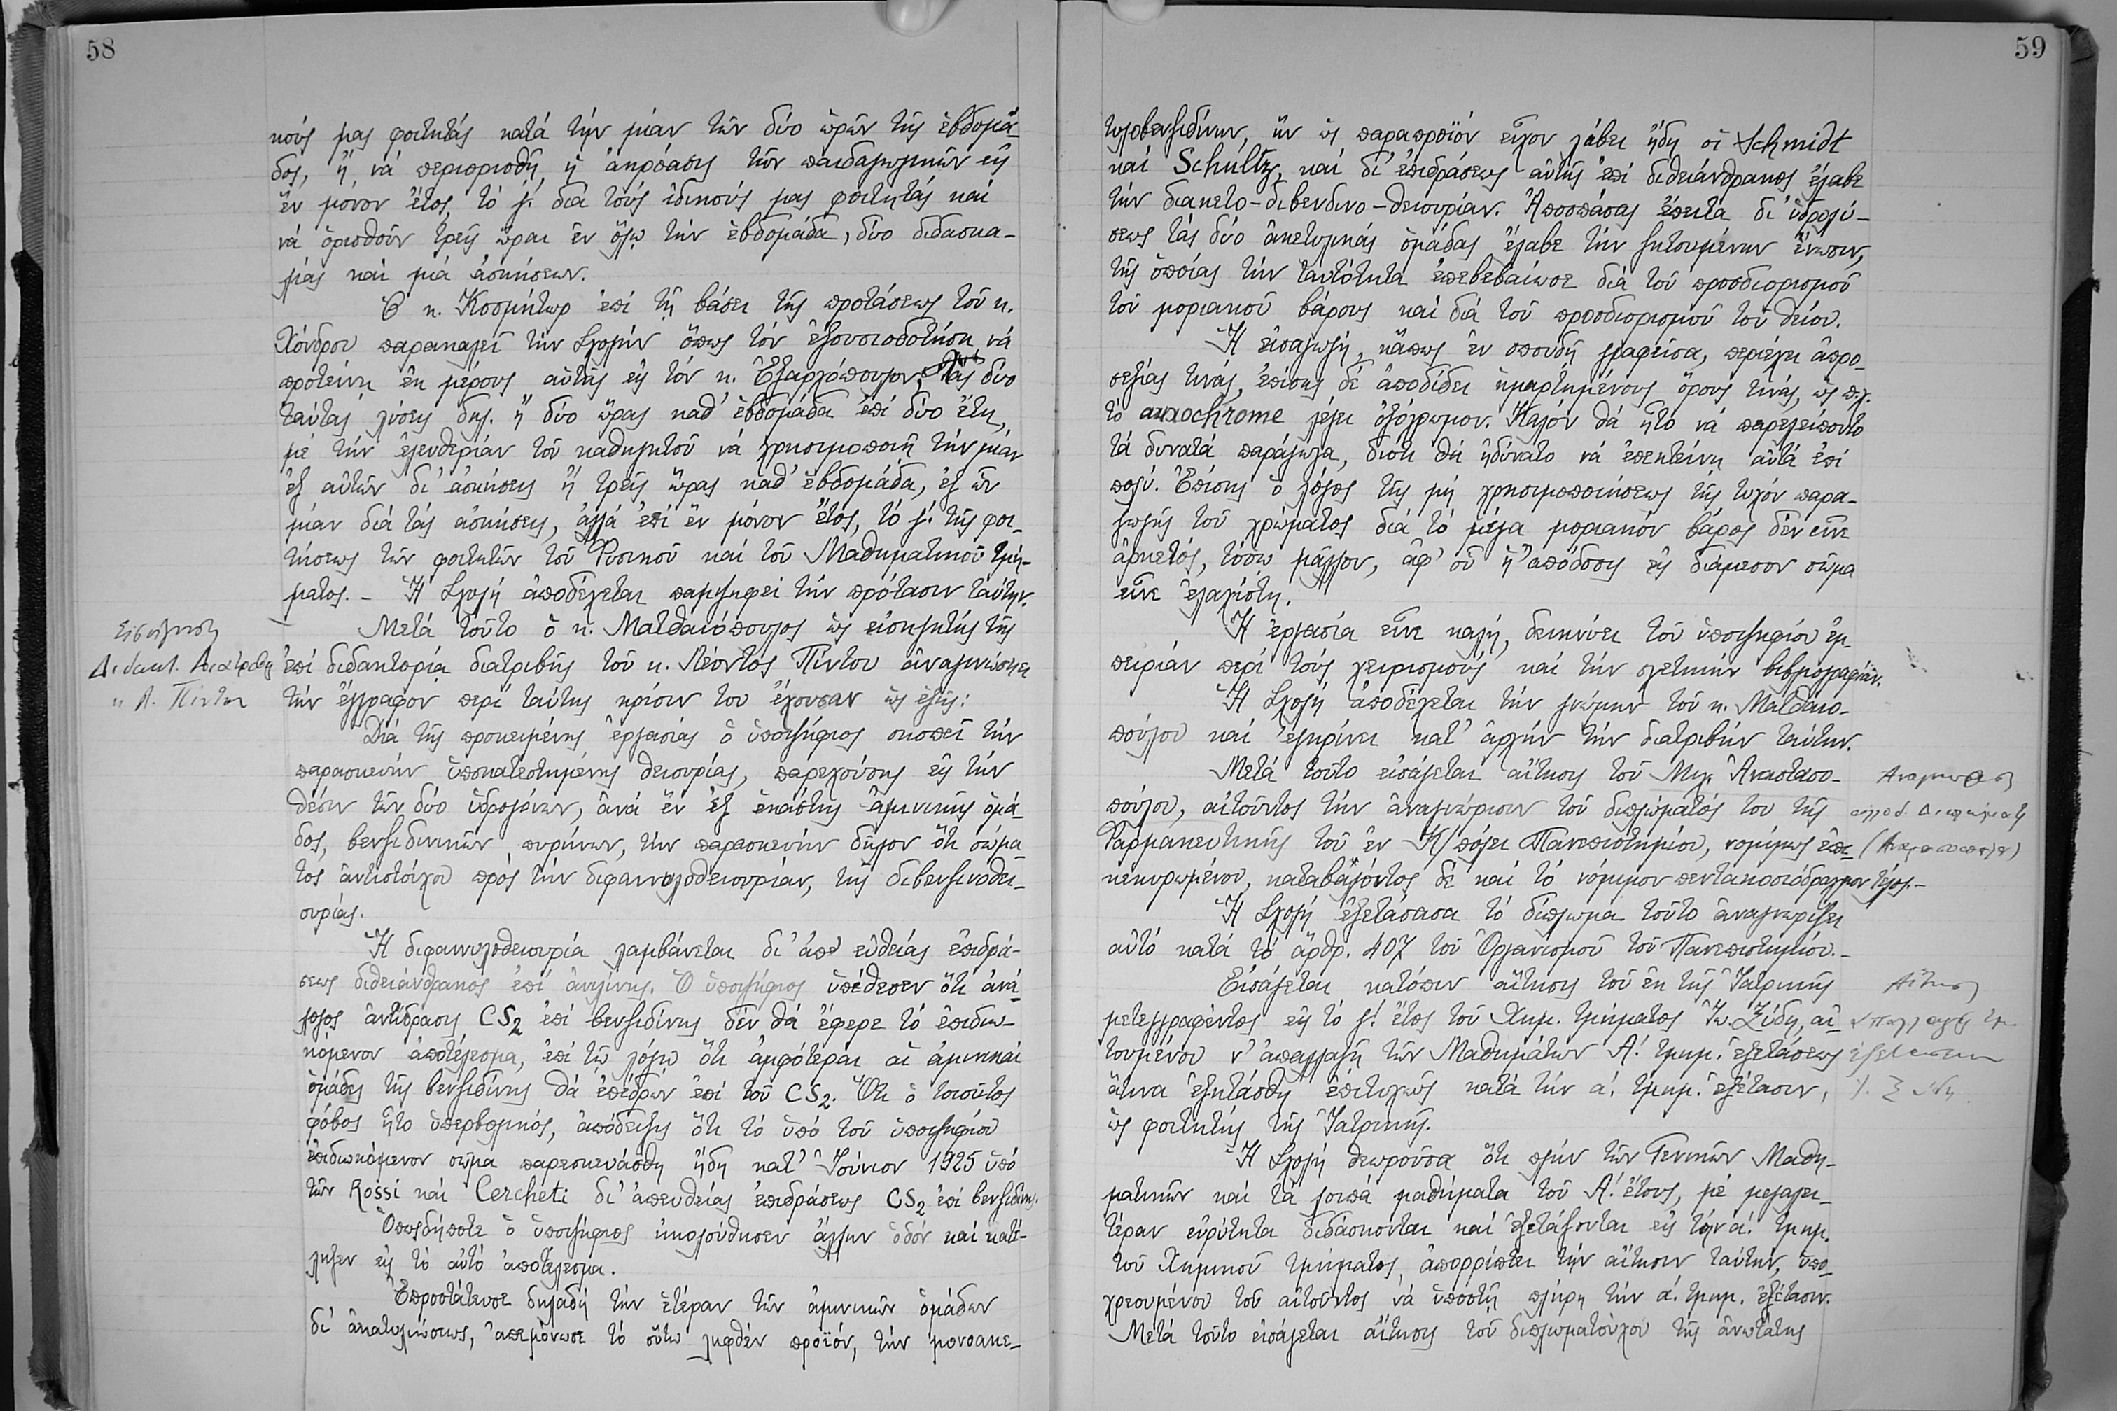 58
κούς μας φοιτητάς κατά τήν μίαν τῶν δύο ὡρῶν τῆς ἑβδομά-
δος, ἤ νά περιορισθῇ ἡ ἀκρόασις τῶν παιδαγωγικῶν εἰς
ἕν μόνον ἔτος, τό γ΄. διά τούς ἰδικούς μας φοιτητάς καί
νά ὁρισθοῦν τρεῖς ὧραι ἐν ὅλῳ τήν ἑβδομάδα, δύο διδασκα-
λίας καί μιά ἀσκήσεων.
Ὁ κ. Κοσμήτωρ ἐπί τῇ βάσει τῆς προτάσεως τοῦ κ.
Χόνδρου παρακαλεῖ τήν Σχολήν ὅπως τόν ἐξουσιοδοτήσῃ νά
προτείνῃ ἐκ μέρους αὐτῆς εἰς τόν κ. Ἐξαρχόπουλον τάς δύο
ταύτας λύσεις δηλ. ἤ δύο ὥρας καθ' ἑβδομάδα ἐπί δύο ἔτη,
μέ τήν ἐλευθερίαν τοῦ καθηγητοῦ νά χρησιμοποιῇ τήν μίαν
ἐξ αὐτῶν δι' ἀσκήσεις ἤ τρεῖς ὥρας καθ' ἑβδομάδα, ἐξ ὧν
μίαν διά τάς ἀσκήσεις, ἀλλά ἐπί ἕν μόνον ἔτος, τό γ΄. τῆς φοι-
τήσεως τῶν φοιτητῶν τοῦ Φυσικοῦ καί τοῦ Μαθηματικοῦ τμή-
ματος. - Ἡ Σχολή ἀποδέχεται παμψηφεί τήν πρότασιν ταύτην.
Εἰσήγησις
Διδακτ. Διατριβῆς
κ Λ. Πίντου
Μετά τοῦτο ὁ κ. Ματθαιόπουλος ὡς εἰσηγητής τῆς
ἐπί διδακτορίᾳ διατριβῆς τοῦ κ. Λέοντος Πίντου ἀναγινώσκει
τήν ἔγγραφον περί ταύτης κρίσιν του ἔχουσαν ὡς ἑξῆς:
Διά τῆς προκειμένης ἐργασίας ὁ ὑποψήφιος σκοπεῖ τήν
παρασκευήν ὑποκατεστημένης θειουρίας, παρεχούσης εἰς τήν
θέσιν τῶν δύο ὑδρογόνων, ἀνά ἕν ἐξ ἑκάστης ἀμινικῆς ὁμά-
δος, βενζιδινικῶν πυρήνων, τήν παρασκευήν δῆλον ὅτι σώμα
τος ἀντιστοίχου πρός τήν διφαινυλοθειουρίαν, τῆς διβενζινοθει-
ουρίας.
Ἡ διφαινυλοθειουρία λαμβάνεται δι' ἀπ' εὐθείας ἐπιδρά-
σεως διθειάνθρακος ἐπί ἀνιλίνης. Ὁ ὑποψήφιος ὑπέθεσεν ὅτι ἀνά-
λογος ἀντίδρασις CS2 ἐπί βενζιδίνης δέν θά ἔφερε τό ἐπιδιω-
κόμενον ἀποτέλεσμα, ἐπί τῷ λόγῳ ὅτι ἀμφότεραι αἱ ἀμινικαί
ὁμάδες τῆς βενζιδίνης θά ἐπέδρων ἐπί τοῦ CS2. Ὅτι ὁ τοιοῦτος
φόβος ἦτο ὑπερβολικός, ἀπόδειξις ὅτι τό ὑπό τοῦ ὑποψηφίου
ἐπιδιωκόμενον σῶμα παρεσκευάσθη ἤδη κατ' Ἰούνιον 1925 ὑπό
τῶν Rossi καί Cercheti δι' ἀπευθείας ἐπιδράσεως CS2 ἐπί βενζιδίνης.
Ὁπωσδήποτε ὁ ὑποψήφιος ἠκολούθησεν ἄλλην ὁδόν καί κατέ-
ληξεν εἰς τό αὐτό ἀποτέλεσμα.
Ἐπροστάτευσε δηλαδή τήν ἑτέραν τῶν ἀμινικῶν ὁμάδων
δι' ἀκετυλιώσεως, ἀπεμόνωσε τό οὕτω ληφθέν προϊόν, τήν μονοακε-
59
τυλοβενζιδίνην, ἥν ὡς παραπροϊόν εἶχον λάβει ἤδη οἱ Schmidt
καί Schultz, καί δι' ἐπιδράσεως αὐτῆς ἐπί διθειάνθρακος ἔλαβε
τήν διακετο-διβενδινο-θειουρίαν. Ἀποσπάσας ἔπειτα δι' ὑδρολύ-
σεως τάς δύο ἀκετυλικάς ὁμάδας ἔλαβε τήν ζητουμένην ἕνωσιν,
τῆς ὁποίας τήν ταυτότητα ἐπεβεβαίωσε διά τοῦ προσδιορισμοῦ
τοῦ μοριακοῦ βάρους καί διά τοῦ προσδιορισμοῦ τοῦ θείου.
Ἡ εἰσαγωγή, κάπως ἐν σπουδῇ γραφεῖσα, περιέχει ἀπρο-
σεξίας τινάς, ἐπίσης δέ ἀποδίδει ἡμαρτημένως ὅρους τινάς, ὡς π.χ.
τό auxochrome λέγει ὀξόχρωμον. Καλόν θά ἦτο νά παρελείποντο
τά δυνατά παράγωγα, διότι θά ἠδύνατο νά ἐπεκτείνῃ αὐτά ἐπί
πολύ. Ἐπίσης ὁ λόγος τῆς μή χρησιμοποιήσεως τῆς τυχόν παρα-
γωγῆς τοῦ χρώματος διά τό μέγα μοριακόν βάρος δέν εἶνε
ἀρκετός, τόσῳ μᾶλλον, ἀφ' οὗ ἡ ἀπόδοσις εἰς διάμεσον σῶμα
εἶνε ἐλαχίστη.
Ἡ ἐργασία εἶνε καλή, δεικνύει τοῦ ὑποψηφίου ἐμ-
πειρίαν περί τούς χειρισμούς καί τήν σχετικήν βιβλιογραφίαν.
Ἡ Σχολή ἀποδέχεται τήν γνώμην τοῦ κ. Ματθαιο-
πούλου καί ἐγκρίνει κατ' ἀρχήν τήν διατριβήν ταύτην.
Μετά τοῦτο εἰσάγεται αἴτησις τοῦ Μιχ. Ἀναστασο-
πούλου, αἰτοῦντος τήν ἀναγνώρισιν τοῦ διπλώματός του τῆς
Φαρμακευτικῆς τοῦ ἐν Κ/πόλει Πανεπιστημίου, νομίμως ἐπι-
κεκυρωμένου, καταβαλόντος δέ καί τό νόμιμον πεντακοσιόδραχμον τέλος.-
Ἀναγνώρισις
αλλοδ. Διπλώματος
(Αναστασοπούλου)
Ἡ Σχολή ἐξετάσασα τό δίπλωμα τοῦτο ἀναγνωρίζει
αὐτό κατά τό ἄρθρ. 407 τοῦ Ὀργανισμοῦ τοῦ Πανεπιστημίου.-
Εἰσάγεται κατόπιν αἴτησις τοῦ ἐκ τῆς Ἰατρικῆς
μετεγγραφέντος εἰς τό γ΄. ἔτος τοῦ Χημ. τμήματος Ἰω. Ξύδη, αἰ-
τουμένου ν' ἀπαλλαγῇ τῶν Μαθημάτων Α΄. τμημ. ἐξετάσεως
ἅτινα ἐξητάσθη ἐπιτυχῶς κατά τήν α΄. τμημ. ἐξέτασιν,
ὡς φοιτητής τῆς Ἰατρικῆς.
Αἴτησις
Ἡ Σχολή θεωροῦσα ὅτι πλήν τῶν Γενικῶν Μαθη-
ματικῶν καί τά λοιπά μαθήματα τοῦ Α΄. ἔτους, μέ μεγαλει-
τέραν εὐρύτητα διδάσκονται καί ἐξετάζονται εἰς τήν α΄. τμημ.
τοῦ Χημικοῦ τμήματος, ἀπορρίπτει τήν αἴτησιν ταύτην, ὑπο-
χρεουμένου τοῦ αἰτοῦντος νά ὑποστῇ πλήρη τήν α΄. τμημ. ἐξέτασιν.
Μετά τοῦτο εἰσάγεται αἴτησις τοῦ διπλωματούχου τῆς ἀνωτάτης